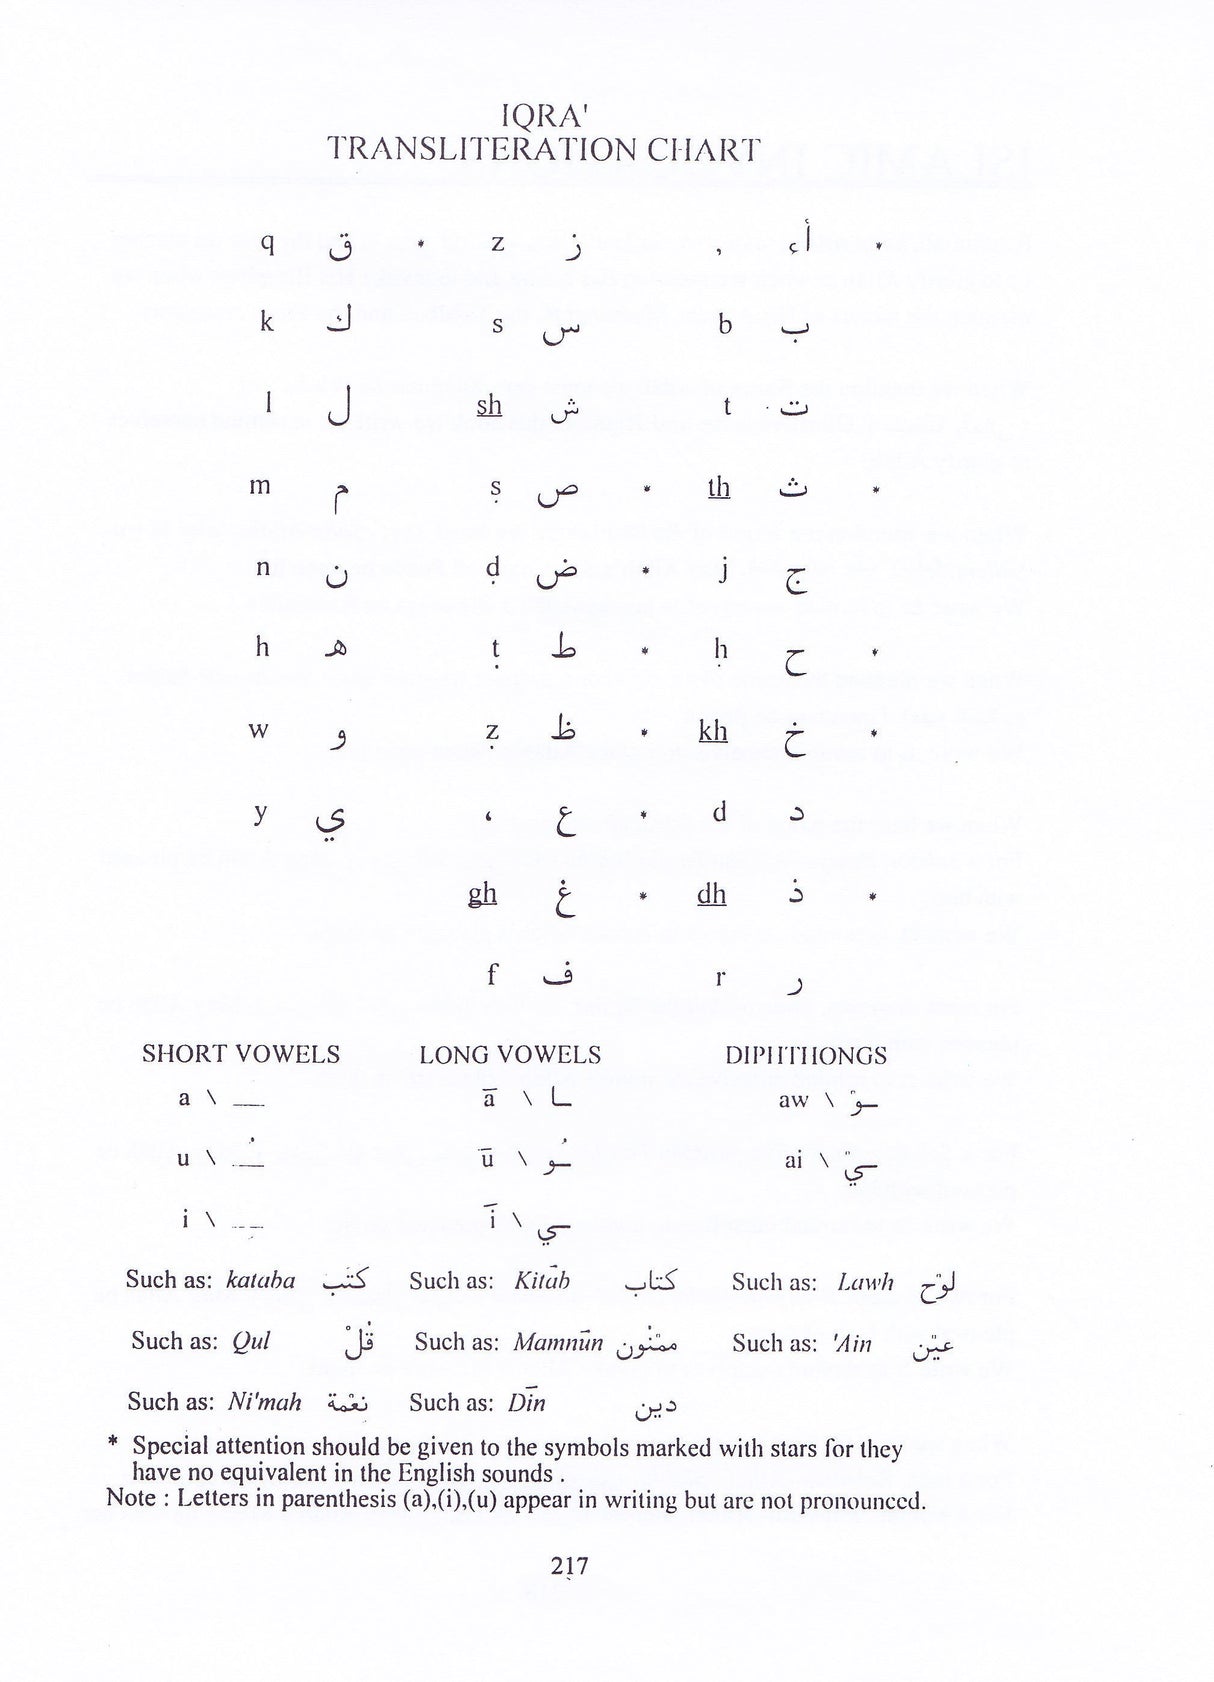 IQRA'
TRANSLITERATION CHART
q ق * z ز ' أء *
k ك s س b ب
l ل sh ش t ت
m م ṣ ص * th ث *
n ن ḍ ض * j ج
h ه ṭ ط * ḥ ح *
w و ẓ ظ * kh خ *
y ي ‘ ع * d د
gh غ * dh ذ *
f ف r ر
SHORT VOWELS LONG VOWELS DIPHTHONGS
a \ ـَ ā \ ـا aw \ ـَوْ
u \ ـُ ū \ ـُو ai \ ـَيْ
i \ ـِ ī \ ـي
Such as: kataba كتَب Such as: Kitāb كتاب Such as: Lawh لَوْح
Such as: Qul قُلْ Such as: Mamnūn ممْنُون Such as: 'Ain عَيْن
Such as: Ni'mah نعْمة Such as: Dīn دين
* Special attention should be given to the symbols marked with stars for they
have no equivalent in the English sounds .
Note : Letters in parenthesis (a),(i),(u) appear in writing but are not pronounced.
217